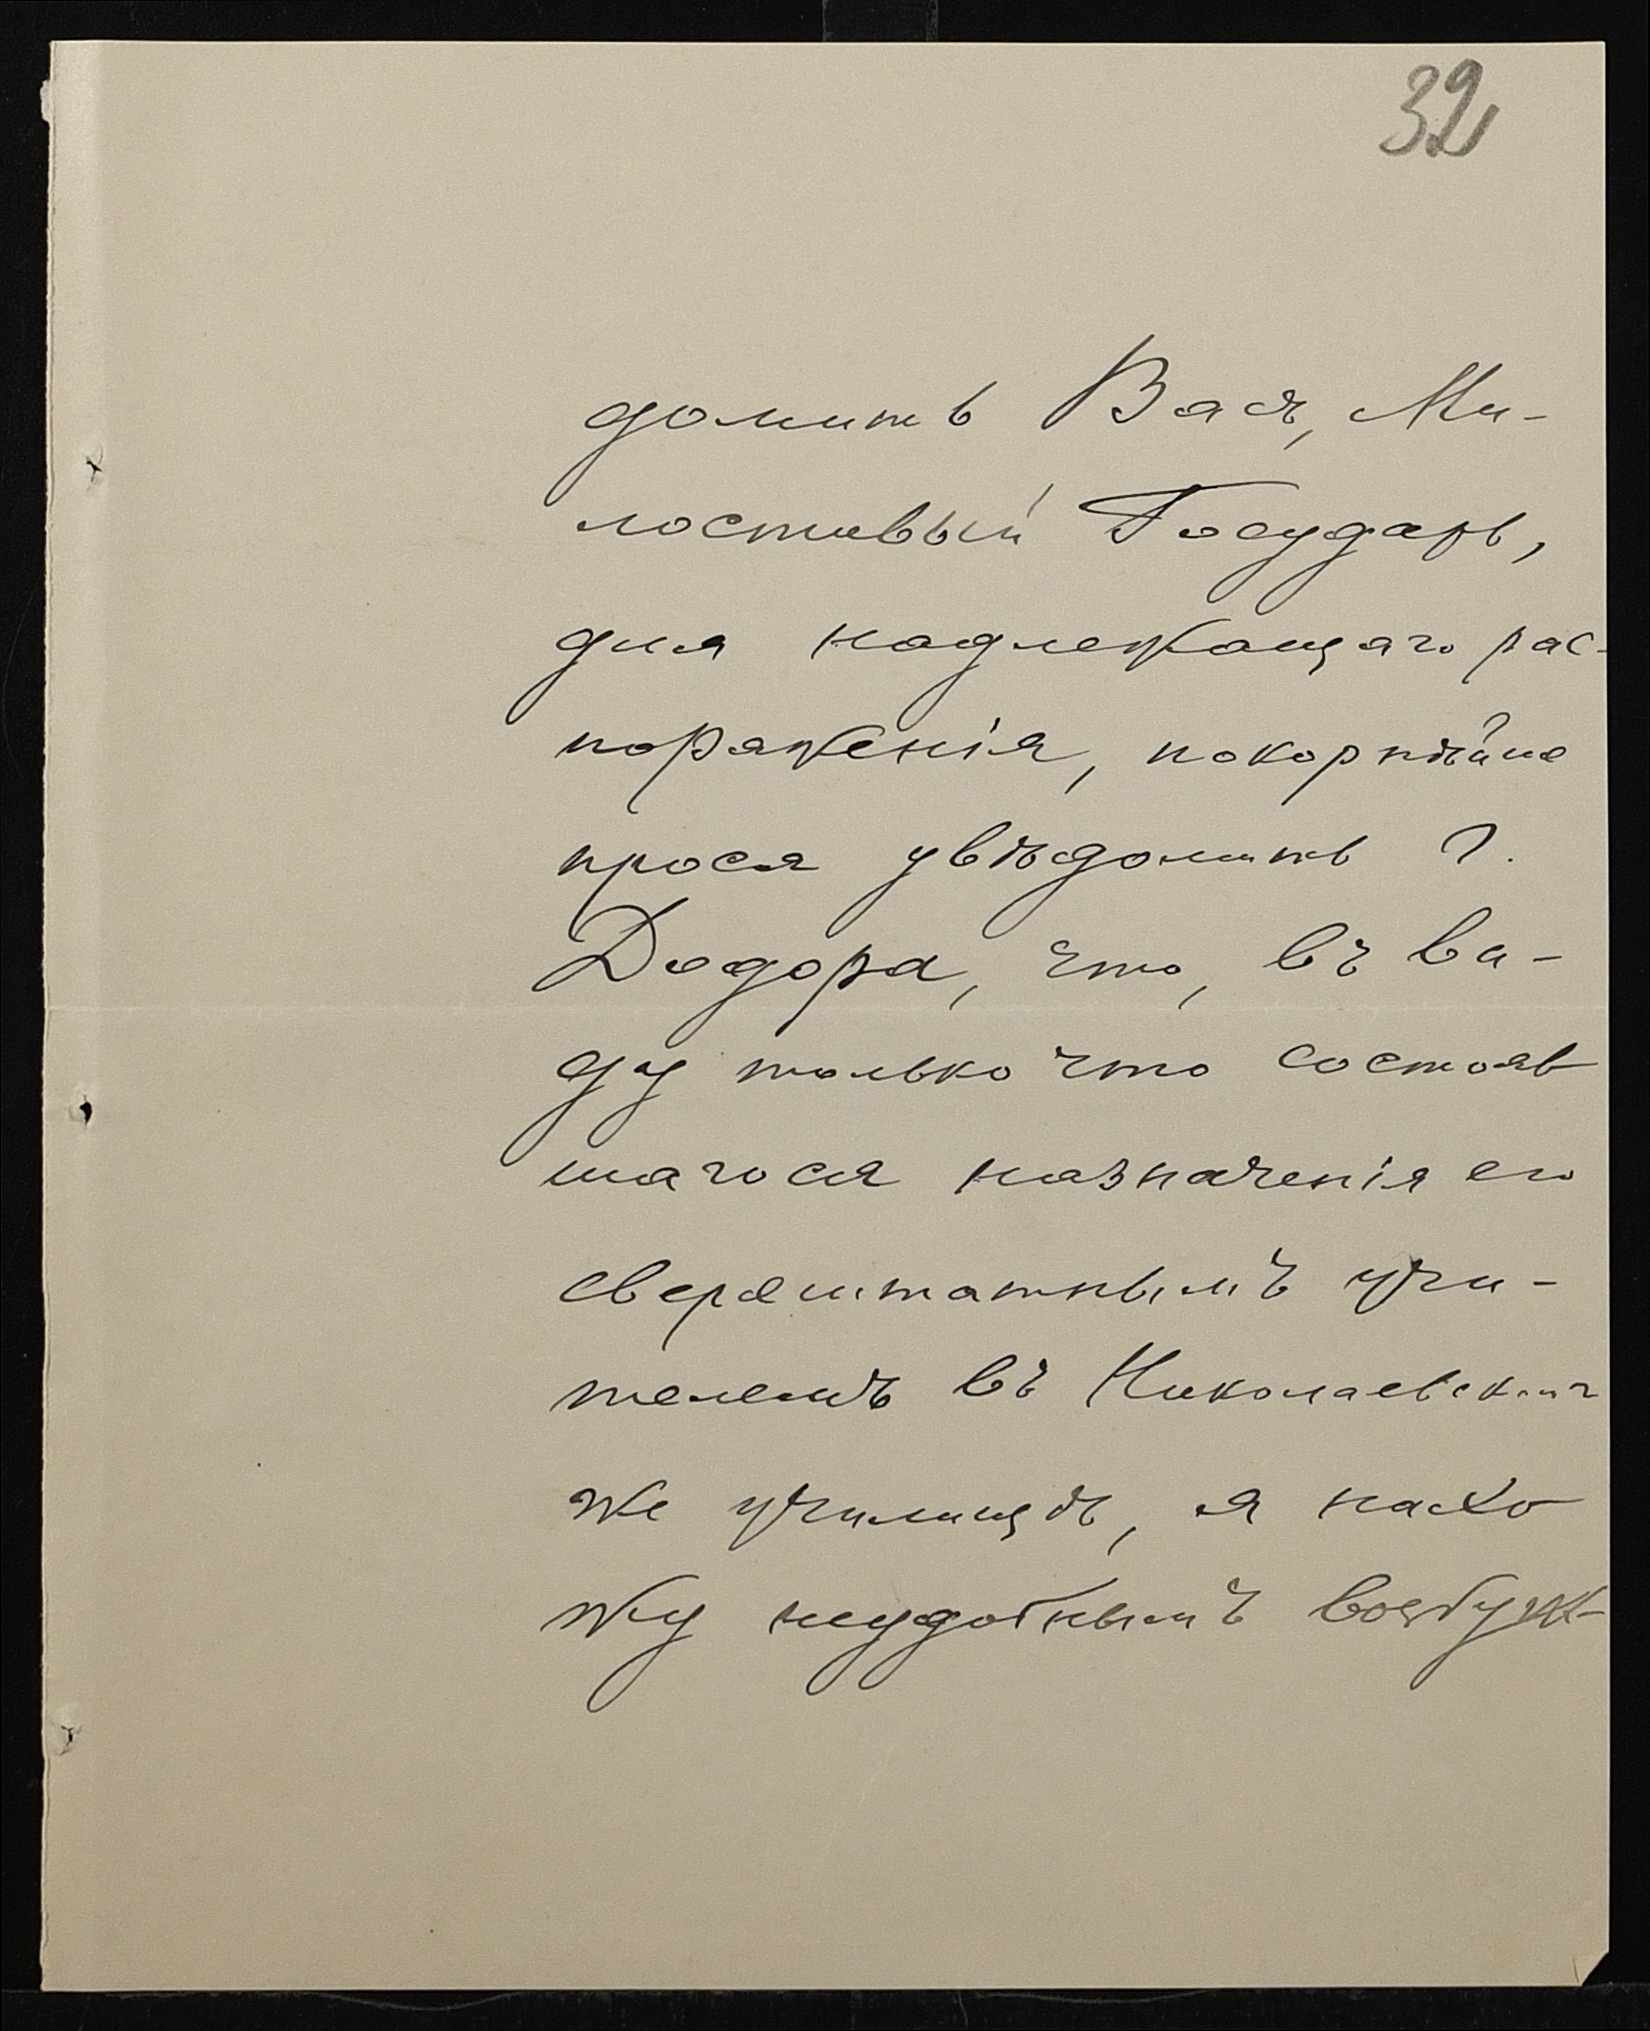 32
домить Васъ, Ми-
лостивый Государь,
для надлежащаго рас-
поряженія, покорнѣйше
прося увѣдомить Г.
Додора, что, въ ви-
ду только что состояв
шагося назначенія его
сверхштатнымъ учи-
телемъ въ Николаевскомъ
же училищѣ, я нахо
жу неудобнымъ возбуж-